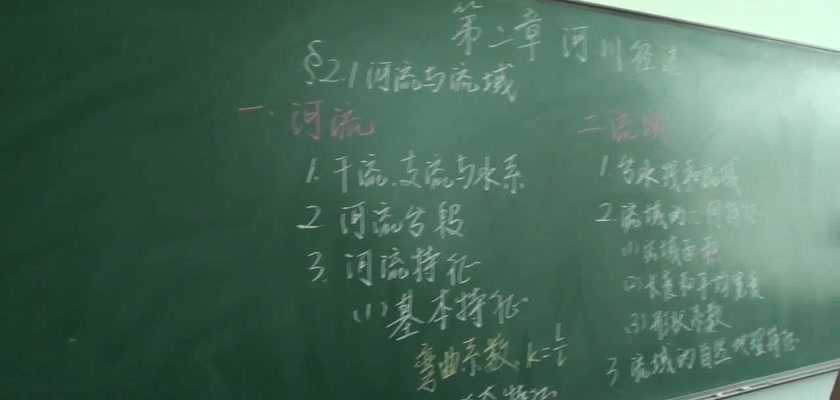 第二章 河川径流
§2.1 河流与流域
一. 河流
1. 干流、支流与水系
2 河流分段
3. 河流特征
(1) 基本特征
弯曲系数, k=
特征
二 流域
1. 分水线和流域
2. 流域的
(1) 流域面积
(2) 长度和平均宽度
(3) 形状系数
3 流域的自然地理特征